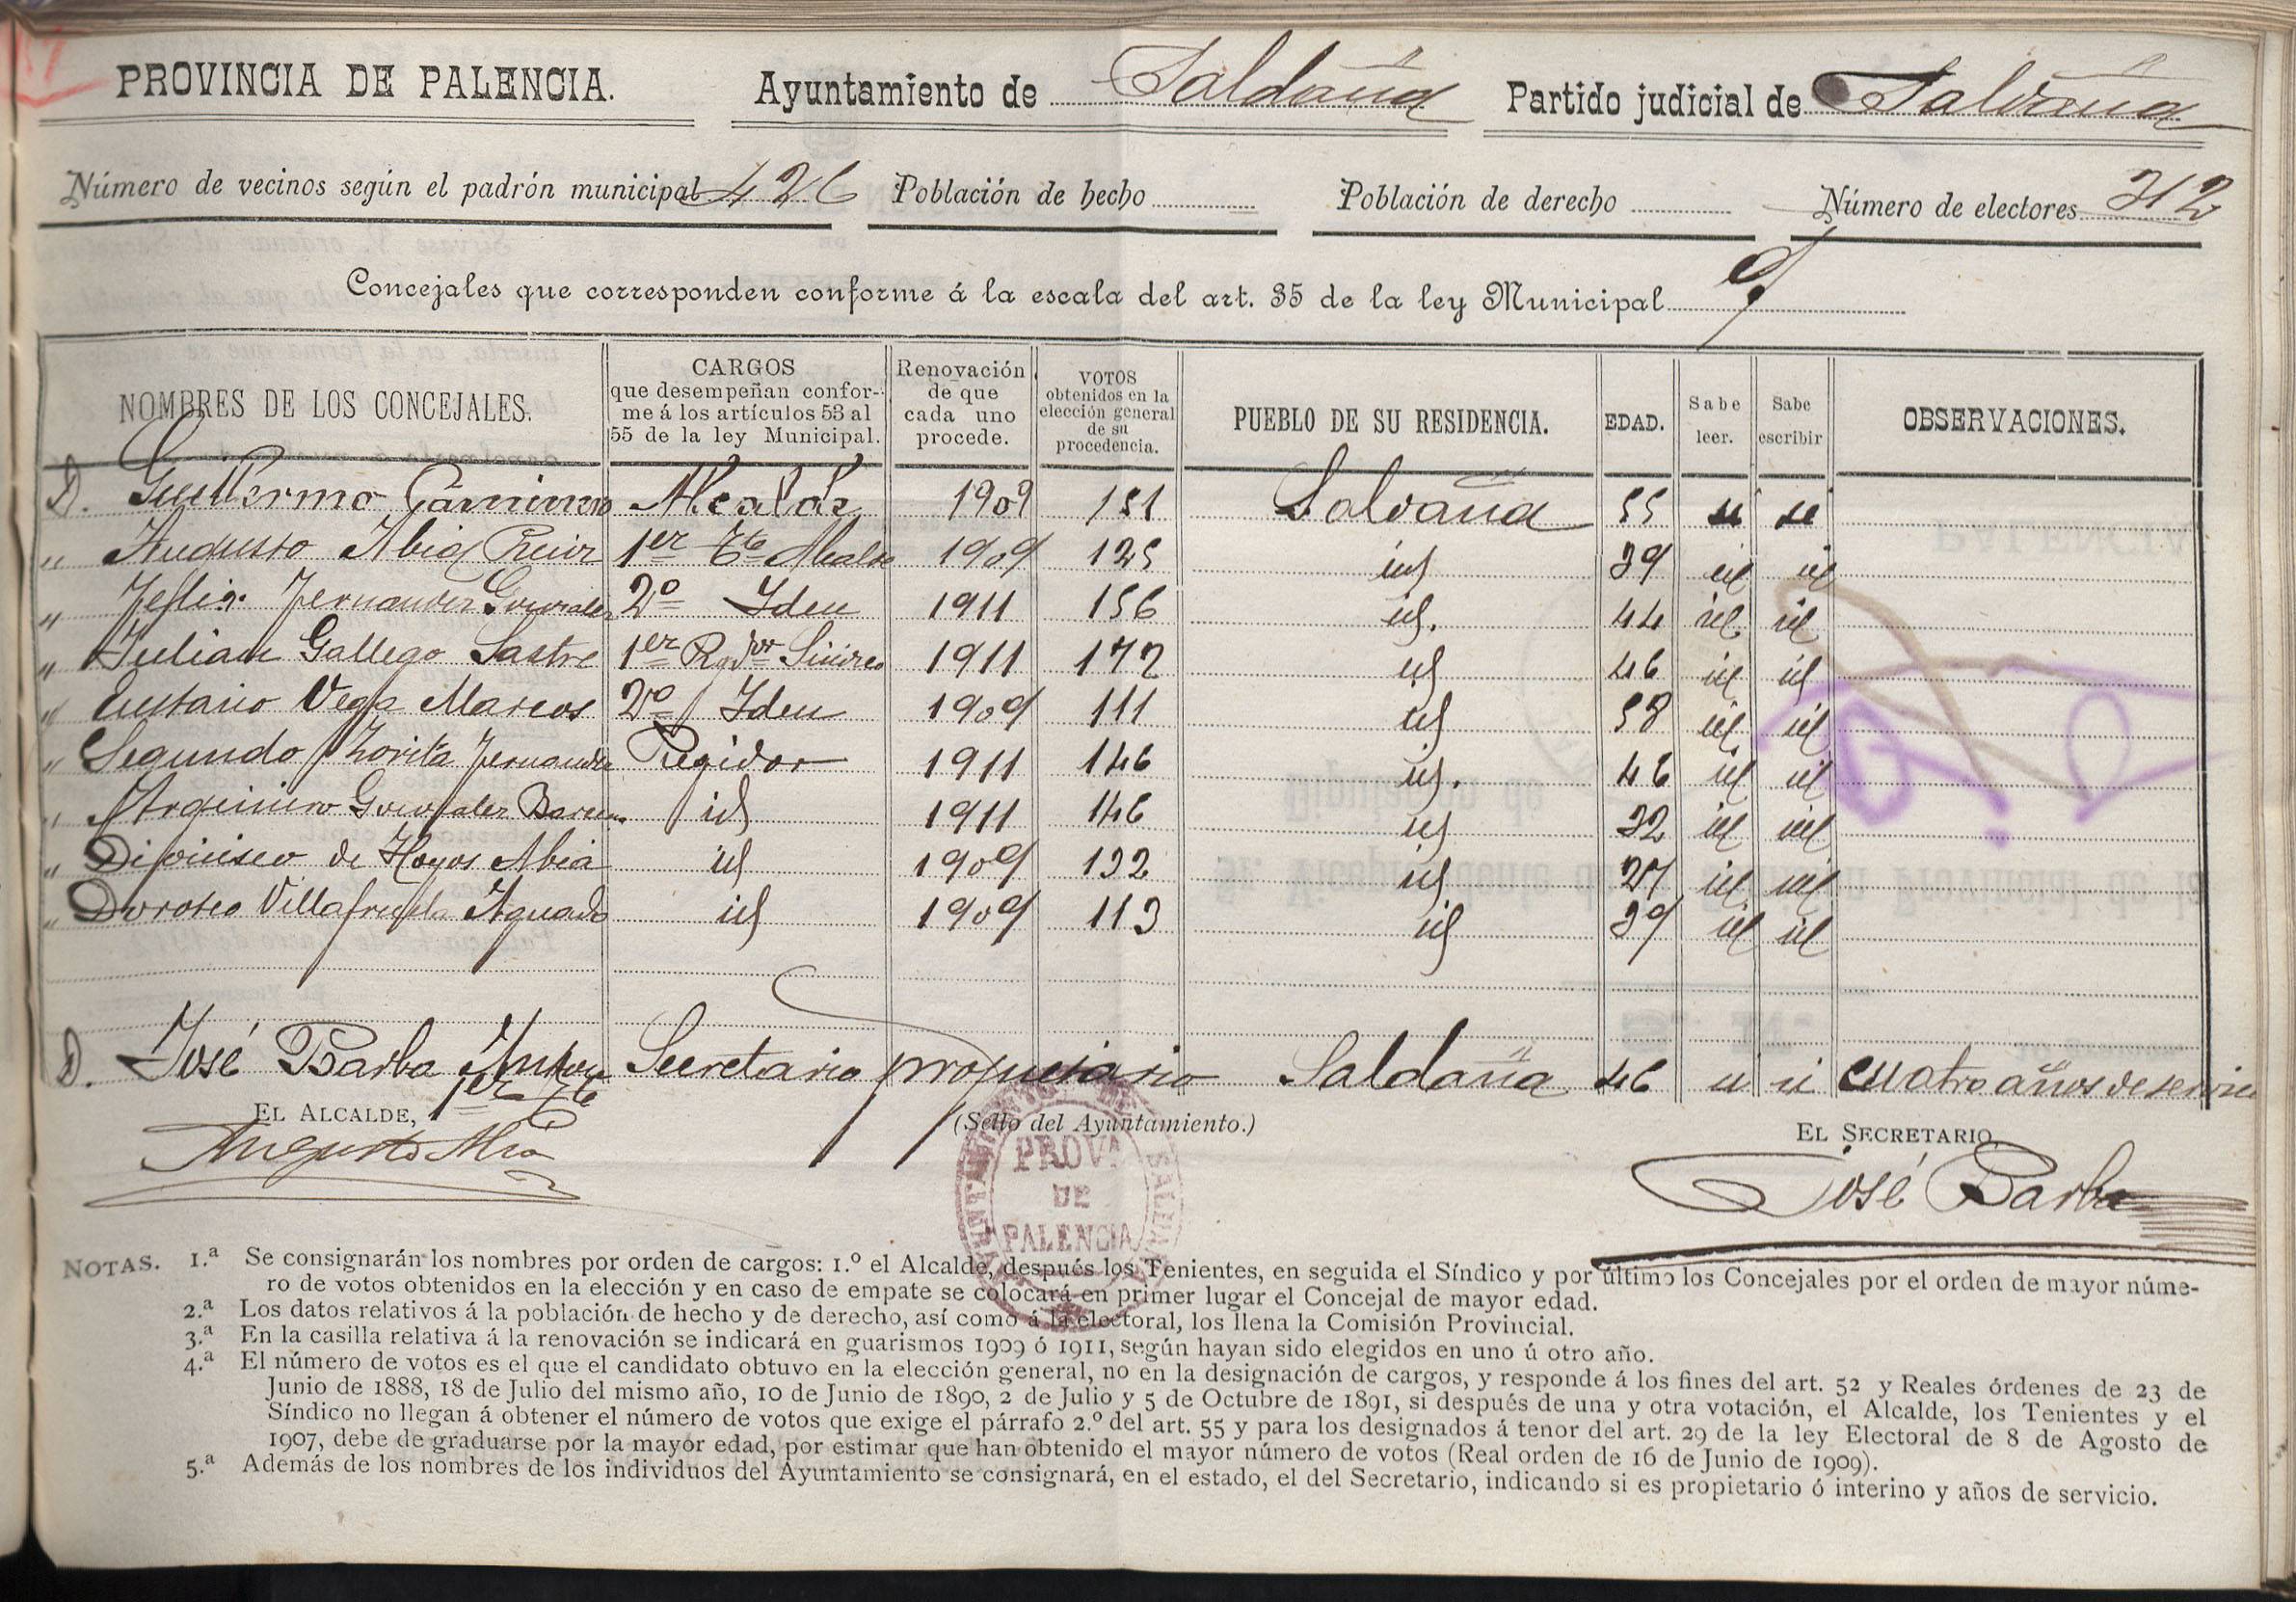 PROVINCIA DE PALENCIA. Ayuntamiento de Saldaña Partido judicial de Saldaña
Número de vecinos según el padrón municipal 426 Población de hecho Población de derecho Número de electores 312
Concejales que corresponden conforme á la escala del art. 35 de la ley Municipal 9
NOMBRES DE LOS CONCEJALES. CARGOS que desempeñan confor-me á los artículos 53 al 55 de la ley Municipal. Renovación de que cada uno procede. VOTOS obtenidos en la elección general de su procedencia. PUEBLO DE SU RESIDENCIA. EDAD. Sabe leer. Sabe escribir OBSERVACIONES.
D. Guillermo Alcalde 1909 151 Saldaña 55 si si
" Augusto Abia 1er Tte Alcalde 1909 125 id 39 id id
" Felix Fernandez Gonzalez 2º Idem 1911 156 id. 44 id id
" Julian Gallego Sastre 1er Rgdor Sindico 1911 172 id 46 id id
" Eustasio Vega Marcos 2º Idem 1909 111 id 58 id id
" Segundo Zorita Fernandez Regidor 1911 146 id. 46 id id
" Argimiro Gonzalez id 1911 146 id 32 id id
" Dionisio de Hoyos Abia id 1909 132 id 27 id id
" Doroteo Villafruela Aguado id 1909 113 id 39 id id
D. José Barba Secretario propietario Saldaña 46 si si cuatro años de servicio
EL ALCALDE, 1er Tte (Sello del Ayuntamiento.) EL SECRETARIO,
Augusto Abia José Barba
PROVA
DE
PALENCIA
NOTAS. 1.ª Se consignarán los nombres por orden de cargos: 1.º el Alcalde, después los Tenientes, en seguida el Síndico y por último los Concejales por el orden de mayor núme-
ro de votos obtenidos en la elección y en caso de empate se colocará en primer lugar el Concejal de mayor edad.
2.ª Los datos relativos á la población de hecho y de derecho, así como á la electoral, los llena la Comisión Provincial.
3.ª En la casilla relativa á la renovación se indicará en guarismos 1909 ó 1911, según hayan sido elegidos en uno ú otro año.
4.ª El número de votos es el que el candidato obtuvo en la elección general, no en la designación de cargos, y responde á los fines del art. 52 y Reales órdenes de 23 de
Junio de 1888, 18 de Julio del mismo año, 10 de Junio de 1890, 2 de Julio y 5 de Octubre de 1891, si después de una y otra votación, el Alcalde, los Tenientes y el
Síndico no llegan á obtener el número de votos que exige el párrafo 2.º del art. 55 y para los designados á tenor del art. 29 de la ley Electoral de 8 de Agosto de
1907, debe de graduarse por la mayor edad, por estimar que han obtenido el mayor número de votos (Real orden de 16 de Junio de 1909).
5.ª Además de los nombres de los individuos del Ayuntamiento se consignará, en el estado, el del Secretario, indicando si es propietario ó interino y años de servicio.